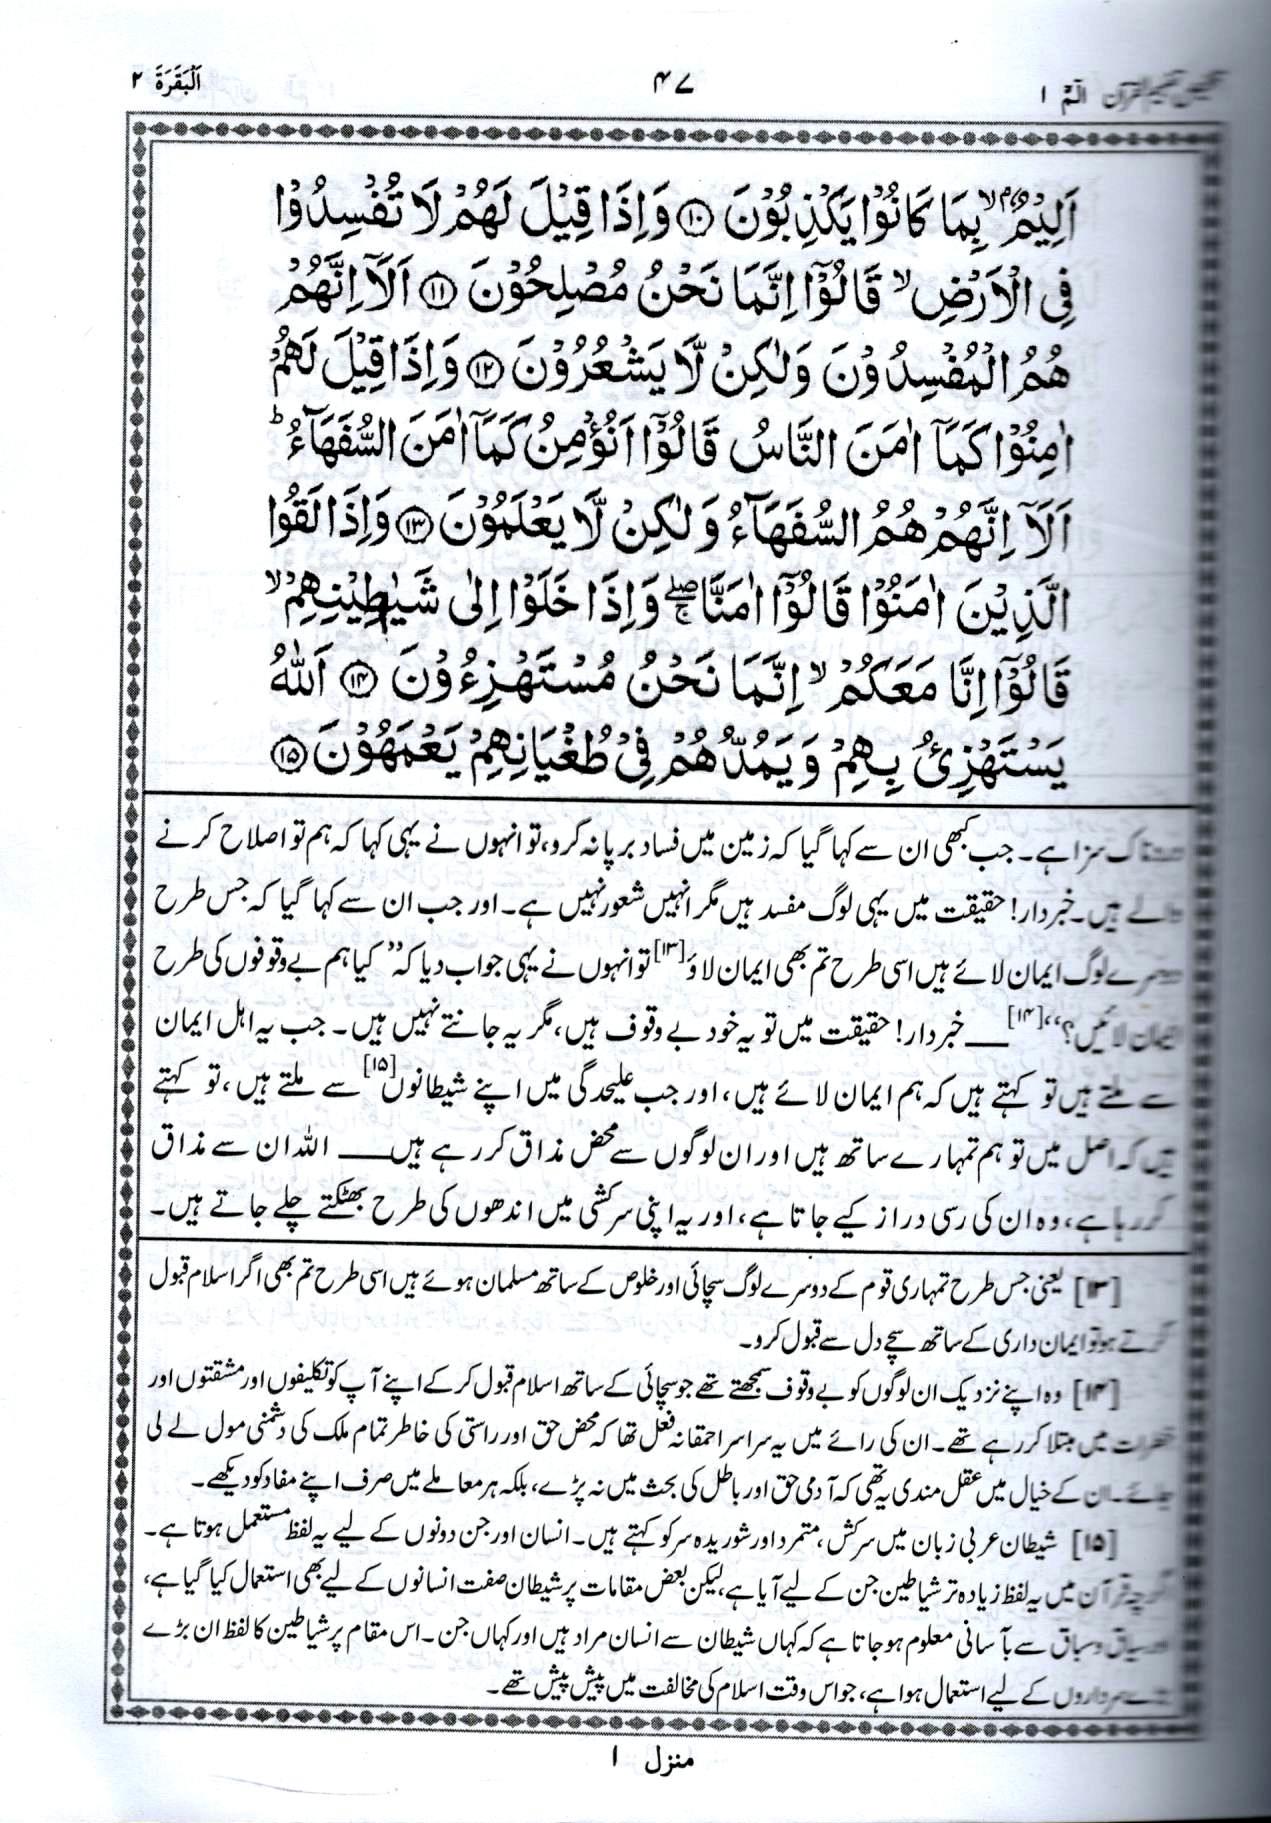 تلخیص تفہیم القرآن الٓمّٓ ۱
۴۷
اَلْبَقَرَۃ ۲
اَلِيْمٌۢ ۙ۬ بِمَا كَانُوْا يَكْذِبُوْنَ ۝۱۰ وَاِذَا قِيْلَ لَهُمْ لَا تُفْسِدُوْا
فِى الْاَرْضِ ۙ قَالُوْٓا اِنَّمَا نَحْنُ مُصْلِحُوْنَ ۝۱۱ اَلَاۤ اِنَّهُمْ
هُمُ الْمُفْسِدُوْنَ وَلٰكِنْ لَّا يَشْعُرُوْنَ ۝۱۲ وَاِذَا قِيْلَ لَهُمْ
اٰمِنُوْا كَمَاۤ اٰمَنَ النَّاسُ قَالُوْٓا اَنُؤْمِنُ كَمَاۤ اٰمَنَ السُّفَهَآءُ ؕ
اَلَاۤ اِنَّهُمْ هُمُ السُّفَهَآءُ وَلٰكِنْ لَّا يَعْلَمُوْنَ ۝۱۳ وَاِذَا لَقُوا
الَّذِيْنَ اٰمَنُوْا قَالُوْٓا اٰمَنَّا ۖۚ وَاِذَا خَلَوْا اِلٰى شَيٰطِيْنِهِمْ ۙ
قَالُوْٓا اِنَّا مَعَكُمْ ۙ اِنَّمَا نَحْنُ مُسْتَهْزِءُوْنَ ۝۱۴ اَللّٰهُ
يَسْتَهْزِئُ بِهِمْ وَيَمُدُّهُمْ فِىْ طُغْيَانِهِمْ يَعْمَهُوْنَ ۝۱۵
دردناک سزا ہے۔ جب کبھی ان سے کہا گیا کہ زمین میں فساد برپا نہ کرو، تو انہوں نے یہی کہا کہ ہم تو اصلاح کرنے
والے ہیں۔ خبردار! حقیقت میں یہی لوگ مفسد ہیں مگر انہیں شعور نہیں ہے۔ اور جب ان سے کہا گیا کہ جس طرح
دوسرے لوگ ایمان لائے ہیں اسی طرح تم بھی ایمان لاؤ[۱۳] تو انہوں نے یہی جواب دیا کہ ”کیا ہم بے وقوفوں کی طرح
ایمان لائیں؟“[۱۴] ــــ خبردار! حقیقت میں تو یہ خود بے وقوف ہیں، مگر یہ جانتے نہیں ہیں۔ جب یہ اہل ایمان
سے ملتے ہیں تو کہتے ہیں کہ ہم ایمان لائے ہیں، اور جب علیحدگی میں اپنے شیطانوں[۱۵] سے ملتے ہیں، تو کہتے
ہیں کہ اصل میں تو ہم تمہارے ساتھ ہیں اور ان لوگوں سے محض مذاق کر رہے ہیں ــــ اللہ ان سے مذاق
کر رہا ہے، وہ ان کی رسی دراز کیے جاتا ہے، اور یہ اپنی سرکشی میں اندھوں کی طرح بھٹکتے چلے جاتے ہیں۔
[۱۳] یعنی جس طرح تمہاری قوم کے دوسرے لوگ سچائی اور خلوص کے ساتھ مسلمان ہوئے ہیں اسی طرح تم بھی اگر اسلام قبول
کرتے ہو تو ایمان داری کے ساتھ سچے دل سے قبول کرو۔
[۱۴] وہ اپنے نزدیک ان لوگوں کو بے وقوف سمجھتے تھے جو سچائی کے ساتھ اسلام قبول کر کے اپنے آپ کو تکلیفوں اور مشقتوں اور
خطرات میں مبتلا کر رہے تھے۔ ان کی رائے میں یہ سراسر احمقانہ فعل تھا کہ محض حق اور راستی کی خاطر تمام ملک کی دشمنی مول لے لی
جائے۔ ان کے خیال میں عقل مندی یہ تھی کہ آدمی حق اور باطل کی بحث میں نہ پڑے، بلکہ ہر معاملے میں صرف اپنے مفاد کو دیکھے۔
[۱۵] شیطان عربی زبان میں سرکش، متمرد اور شوریدہ سر کو کہتے ہیں۔ انسان اور جن دونوں کے لیے یہ لفظ مستعمل ہوتا ہے۔
اگرچہ قرآن میں یہ لفظ زیادہ تر شیاطین جن کے لیے آیا ہے، لیکن بعض مقامات پر شیطان صفت انسانوں کے لیے بھی استعمال کیا گیا ہے،
اور سیاق و سباق سے بآسانی معلوم ہو جاتا ہے کہ کہاں شیطان سے انسان مراد ہیں اور کہاں جن۔ اس مقام پر شیاطین کا لفظ ان بڑے
بڑے سرداروں کے لیے استعمال ہوا ہے، جو اس وقت اسلام کی مخالفت میں پیش پیش تھے۔
منزل ۱